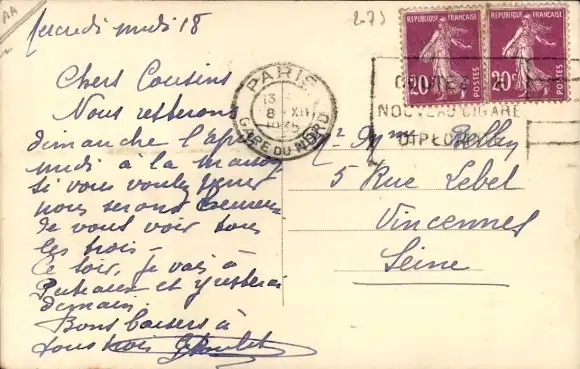 AA
Mercredi midi 18
2-75
Chers Cousins
Nous resterons
dimanche l'après
midi à la maison
si vous voulez venir
nous serons heureux
de vous voir tous
les trois -
Ce soir, je vais à
Puteaux et y resterai
demain.
Bons baisers à
tous trois
REPUBLIQUE FRANÇAISE
20c
POSTES
REPUBLIQUE FRANÇAISE
20c
POSTES
PARIS
13
8 XII
GARE DU NORD
NOUVEAU CIGARE
DIPLO
Mr Mme
5 Rue Lebel
Vincennes
Seine